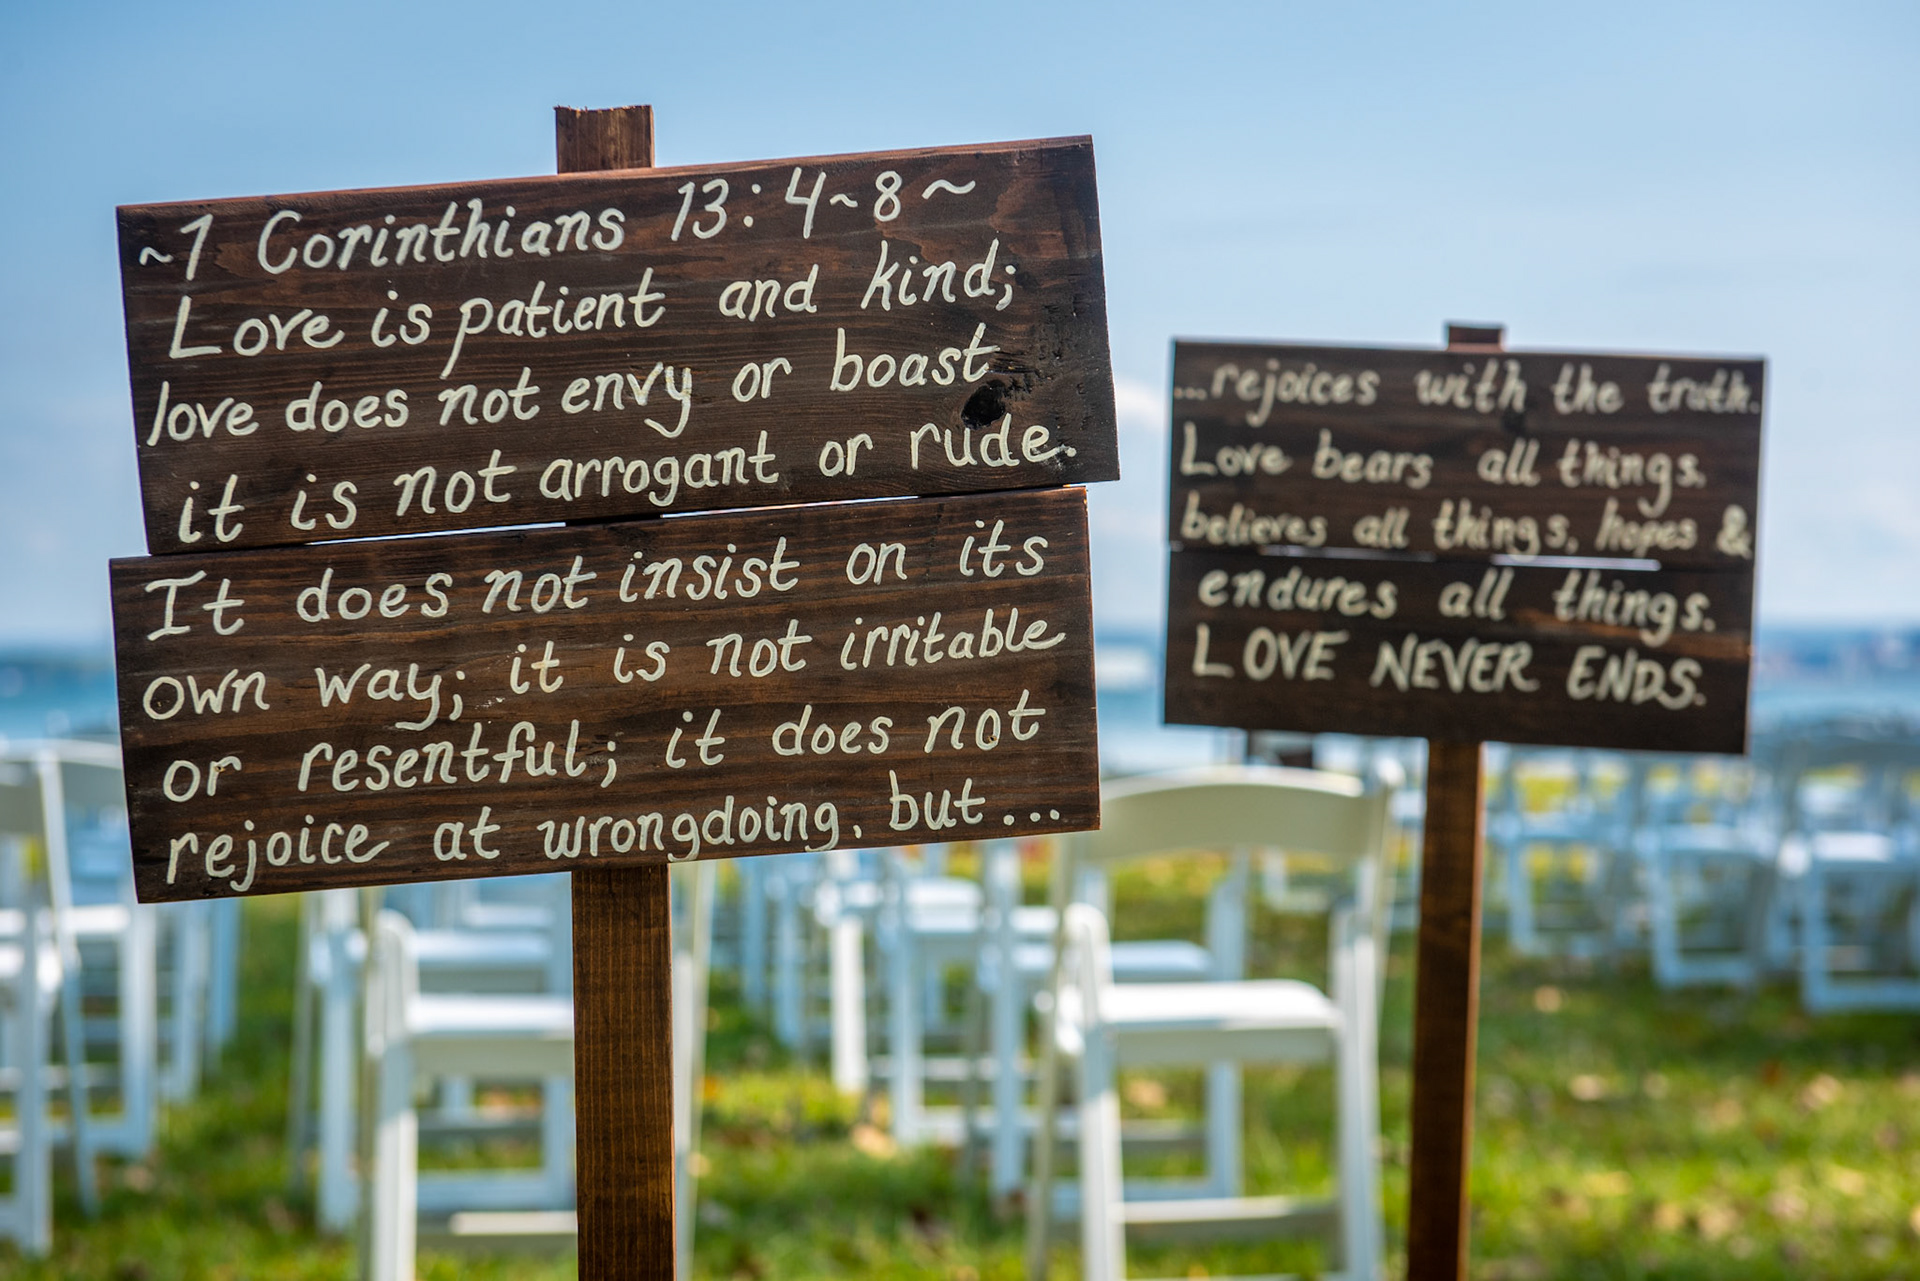 ~1 Corinthians 13:4~8~
Love is patient and kind;
love does not envy or boast
it is not arrogant or rude.
It does not insist on its
own way; it is not irritable
or resentful; it does not
rejoice at wrongdoing, but...
...rejoices with the truth.
Love bears all things,
believes all things, hopes &
endures all things.
LOVE NEVER ENDS.